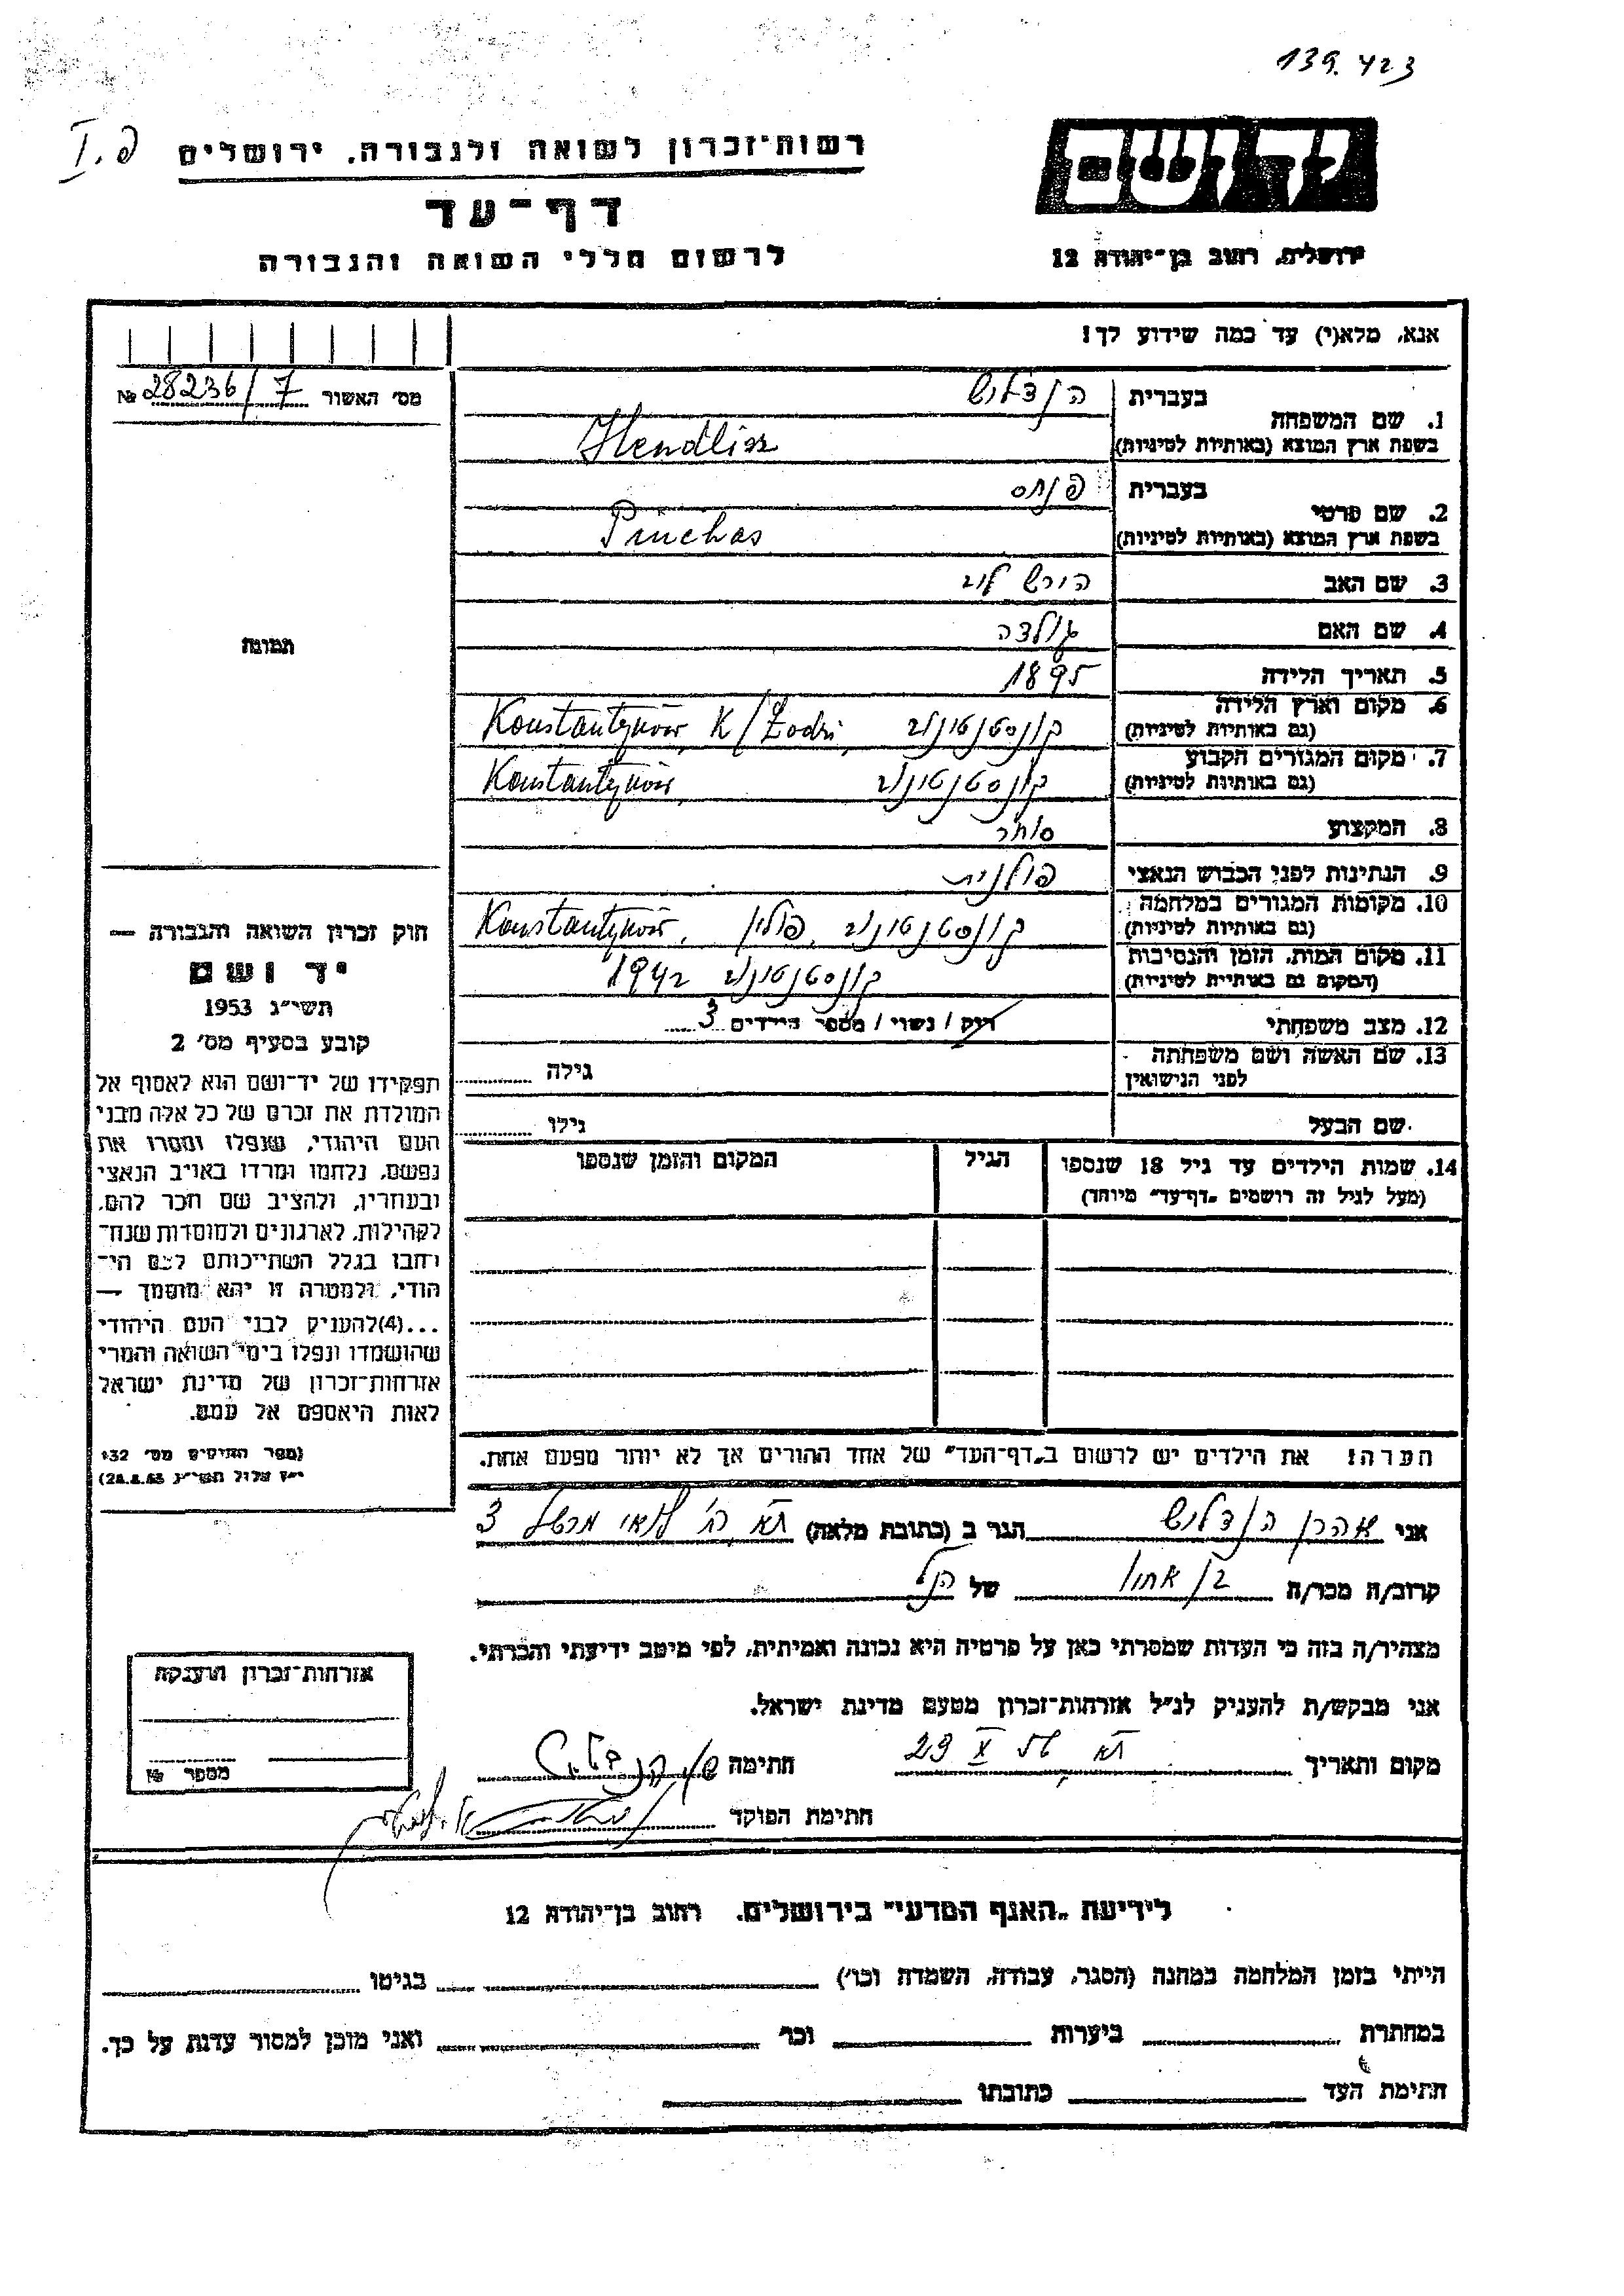 139.423
פ. I
רשות־זכרון לשואה ולגבורה, ירושלים
יד ושם
דף־עד
לרשום חללי השואה והגבורה
ירושלים, רחוב בן־יהודה 12
אנא, מלא(י) עד כמה שידוע לך!
מס׳ האשור 28236/7 №
1. שם המשפחה
בעברית הנדליש
בשפת ארץ המוצא (באותיות לטיניות) Hendlisz
2. שם פרטי
בעברית פנחס
בשפת ארץ המוצא (באותיות לטיניות) Pinchas
3. שם האב הירש לוב
4. שם האם גולדה
5. תאריך הלידה 1895
6. מקום וארץ הלידה
(גם באותיות לטיניות) קונסטנטינוב Konstantynów K/Łodzi,
7. מקום המגורים הקבוע
(גם באותיות לטיניות) קונסטנטינוב Konstantynów,
8. המקצוע סוחר
9. הנתינות לפני הכבוש הנאצי פולנית
10. מקומות המגורים במלחמה
(גם באותיות לטיניות) קונסטנטינוב, פולין Konstantynów,
11. מקום המות, הזמן והנסיבות
(המקום גם באותיות לטיניות) קונסטנטינוב 1942
12. מצב משפחתי רווק / נשוי / מספר הילדים 3
13. שם האשה ושם משפחתה
לפני הנישואין גילה
שם הבעל גילו
14. שמות הילדים עד גיל 18 שנספו הגיל המקום והזמן שנספו
(מעל לגיל זה רושמים „דף־עד״ מיוחד)
הערה! את הילדים יש לרשום ב„דף־העד״ של אחד ההורים אך לא יותר מפעם אחת.
תמונה
חוק זכרון השואה והגבורה —
יד ושם
תשי״ג 1953
קובע בסעיף מס׳ 2
תפקידו של יד־ושם הוא לאסוף אל
המולדת את זכרם של כל אלה מבני
העם היהודי, שנפלו ומסרו את
נפשם, נלחמו ומרדו באויב הנאצי
ובעוזריו, ולהציב שם וזכר להם,
לקהילות, לארגונים ולמוסדות שנח־
רבו בגלל השתייכותם לעם הי־
הודי, ולמטרה זו יהא מוסמך —
...(4) להעניק לבני העם היהודי
שהושמדו ונפלו בימי השואה והמרי
אזרחות־זכרון של מדינת ישראל
לאות היאספם אל עמם.
(ספר החוקים מס׳ 132
י״ז אלול תשי״ג 28.8.53)
אני אהרן הנדליש הגר ב (כתובת מלאה) תא רח׳ לואי מרשל 3
קרוב/ה מכר/ה בן אחיו של הנל
מצהיר/ה בזה כי העדות שמסרתי כאן על פרטיה היא נכונה ואמיתית, לפי מיטב ידיעתי והכרתי.
אני מבקש/ת להעניק לנ״ל אזרחות־זכרון מטעם מדינת ישראל.
מקום ותאריך תא 23 X חתימה
חתימת הפוקד
אזרחות־זכרון הוענקה
מספר №
לידיעת „האגף המדעי״ בירושלים, רחוב בן־יהודה 12
הייתי בזמן המלחמה במחנה (הסגר, עבודה, השמדה וכו׳) בגיטו
במחתרת ביערות וכו׳ ואני מוכן למסור עדות על כך.
חתימת העד כתובתו